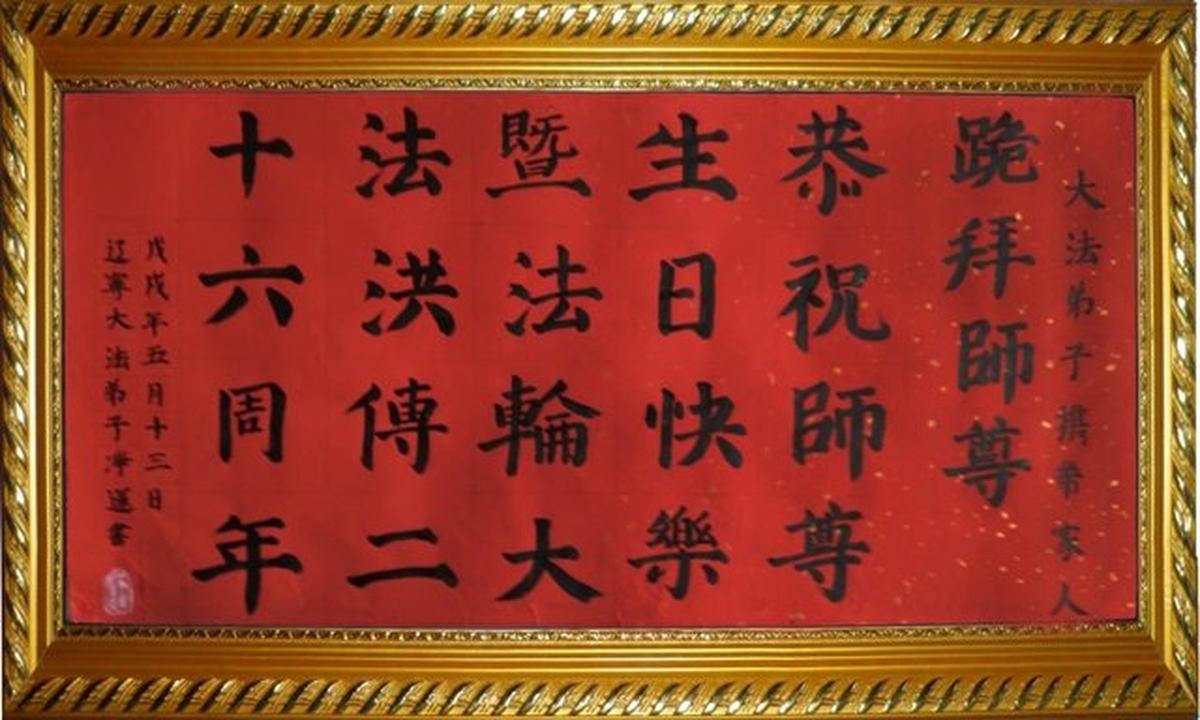 大法弟子携帶家人
跪拜師尊
恭祝師尊
生日快樂
暨法輪大
法洪傳二
十六周年
戊戌年五月十三日
辽寧大法弟子淨蓮書